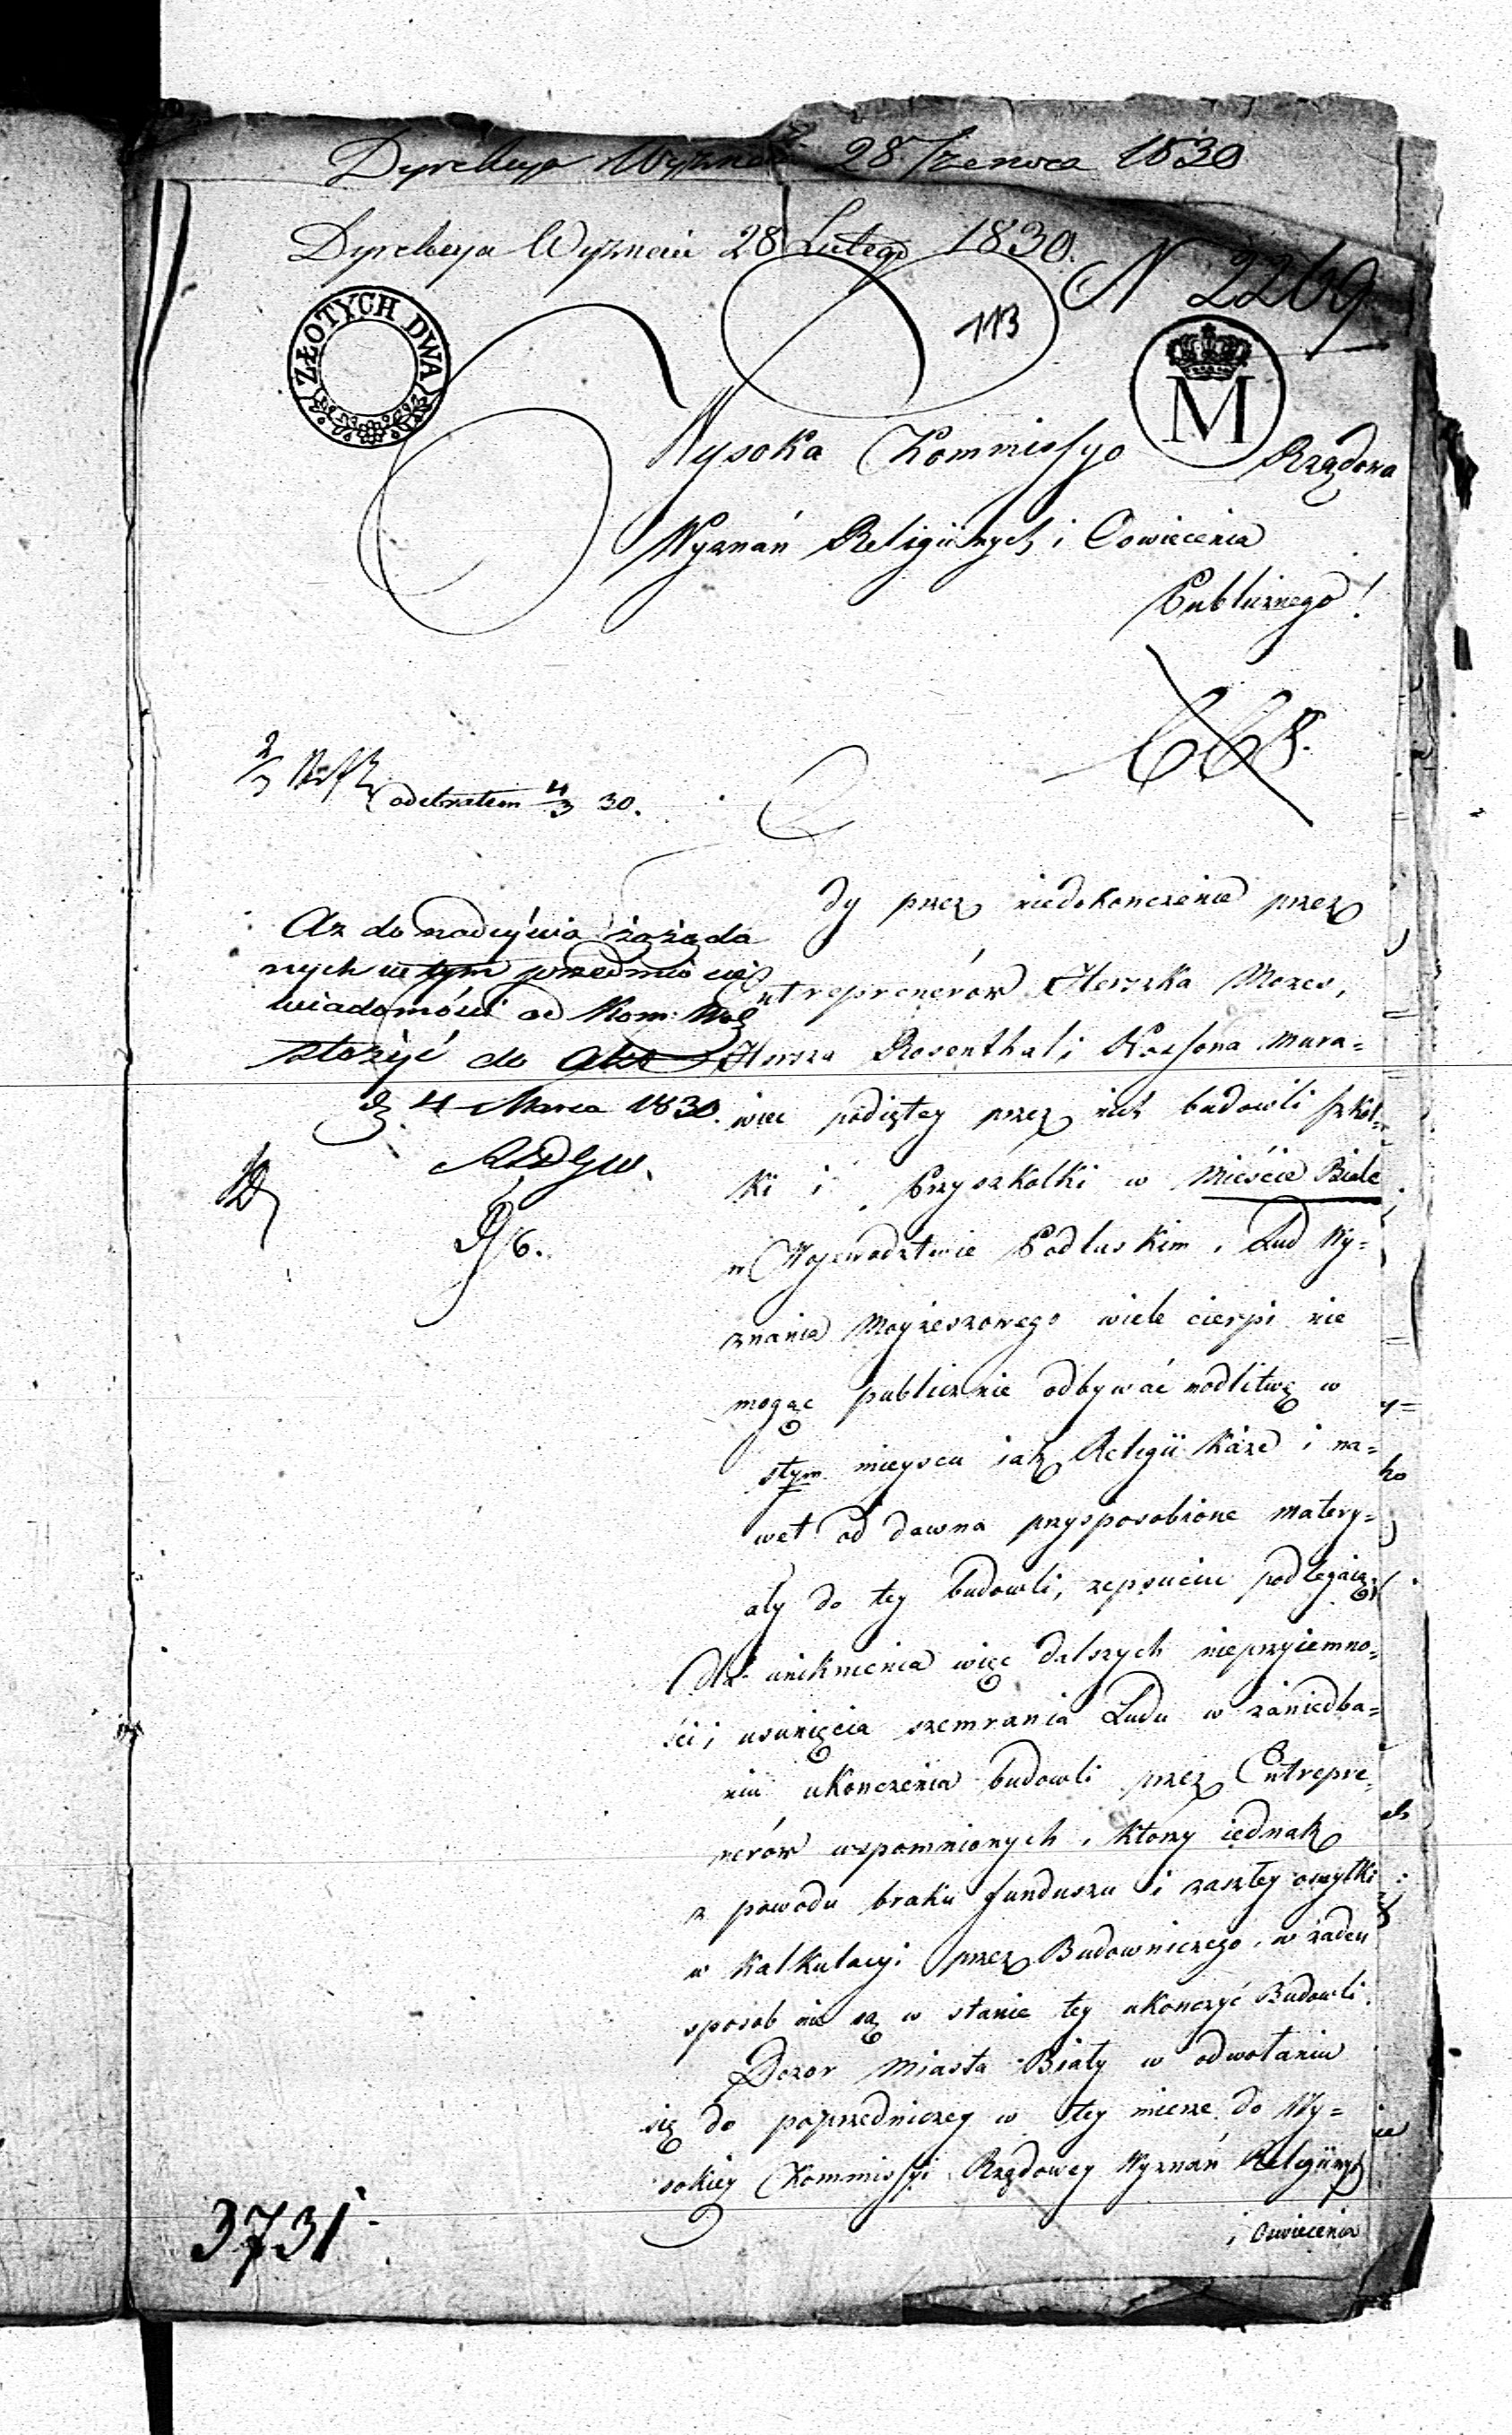 Dyrekcya Wyznań 28 Czerwca 1830
Dyrekcya Wyznań 28 Lutego 1830.
N 2269
113
ZŁOTYCH DWA
M
Wysoka Kommissyo Rządowa
Wyznań Religiinych i Oswiecenia
Publicznego!
668.
2/3
odebrałem 4/3 30.
Az do nadeyścia zażąda
nych w tym przedmiocie
wiadomości od Kom: Woj
złożyć do akt
d. 4 Marca 1830.
Gdy przez niedokonczenie przez
Entreprenerów Herszka Mozes,
Hersza Rosenthal i Kossona Mura-
wiec podiętey przez nich budowli szkoł-
ki i Przyszkolki w Mieście Biale
w Wojewodztwie Podlaskim, Lud Wy-
znania Mojżeszowego wiele cierpi nie
mogąc publicznie odbywać modlitwę w
stym mieyscu iak Religii każe i na-
wet od dawna przysposobione matery-
ały do tey budowli, zepsuciu podlegaią.
Dla uniknienia więc dalszych nieprzyiemno-
ści, usunięcia szemrania Ludu w zaniedba-
niu ukonczenia budowli przez Entrepre-
nerów wspomnionych, ktorzy iednak
z powodu braku funduszu i zaszłey omyłki
w kalkulacyi przez Budowniczego, w żaden
sposob nie są w stanie tey ukonczyć Budowli.
Dozor Miasta Biały w odwołaniu
się do poprzedniczey w tey mierze do Wy-
sokiey Kommissyi Rządowey Wyznań Religiinych
i Oswiecenia
3731